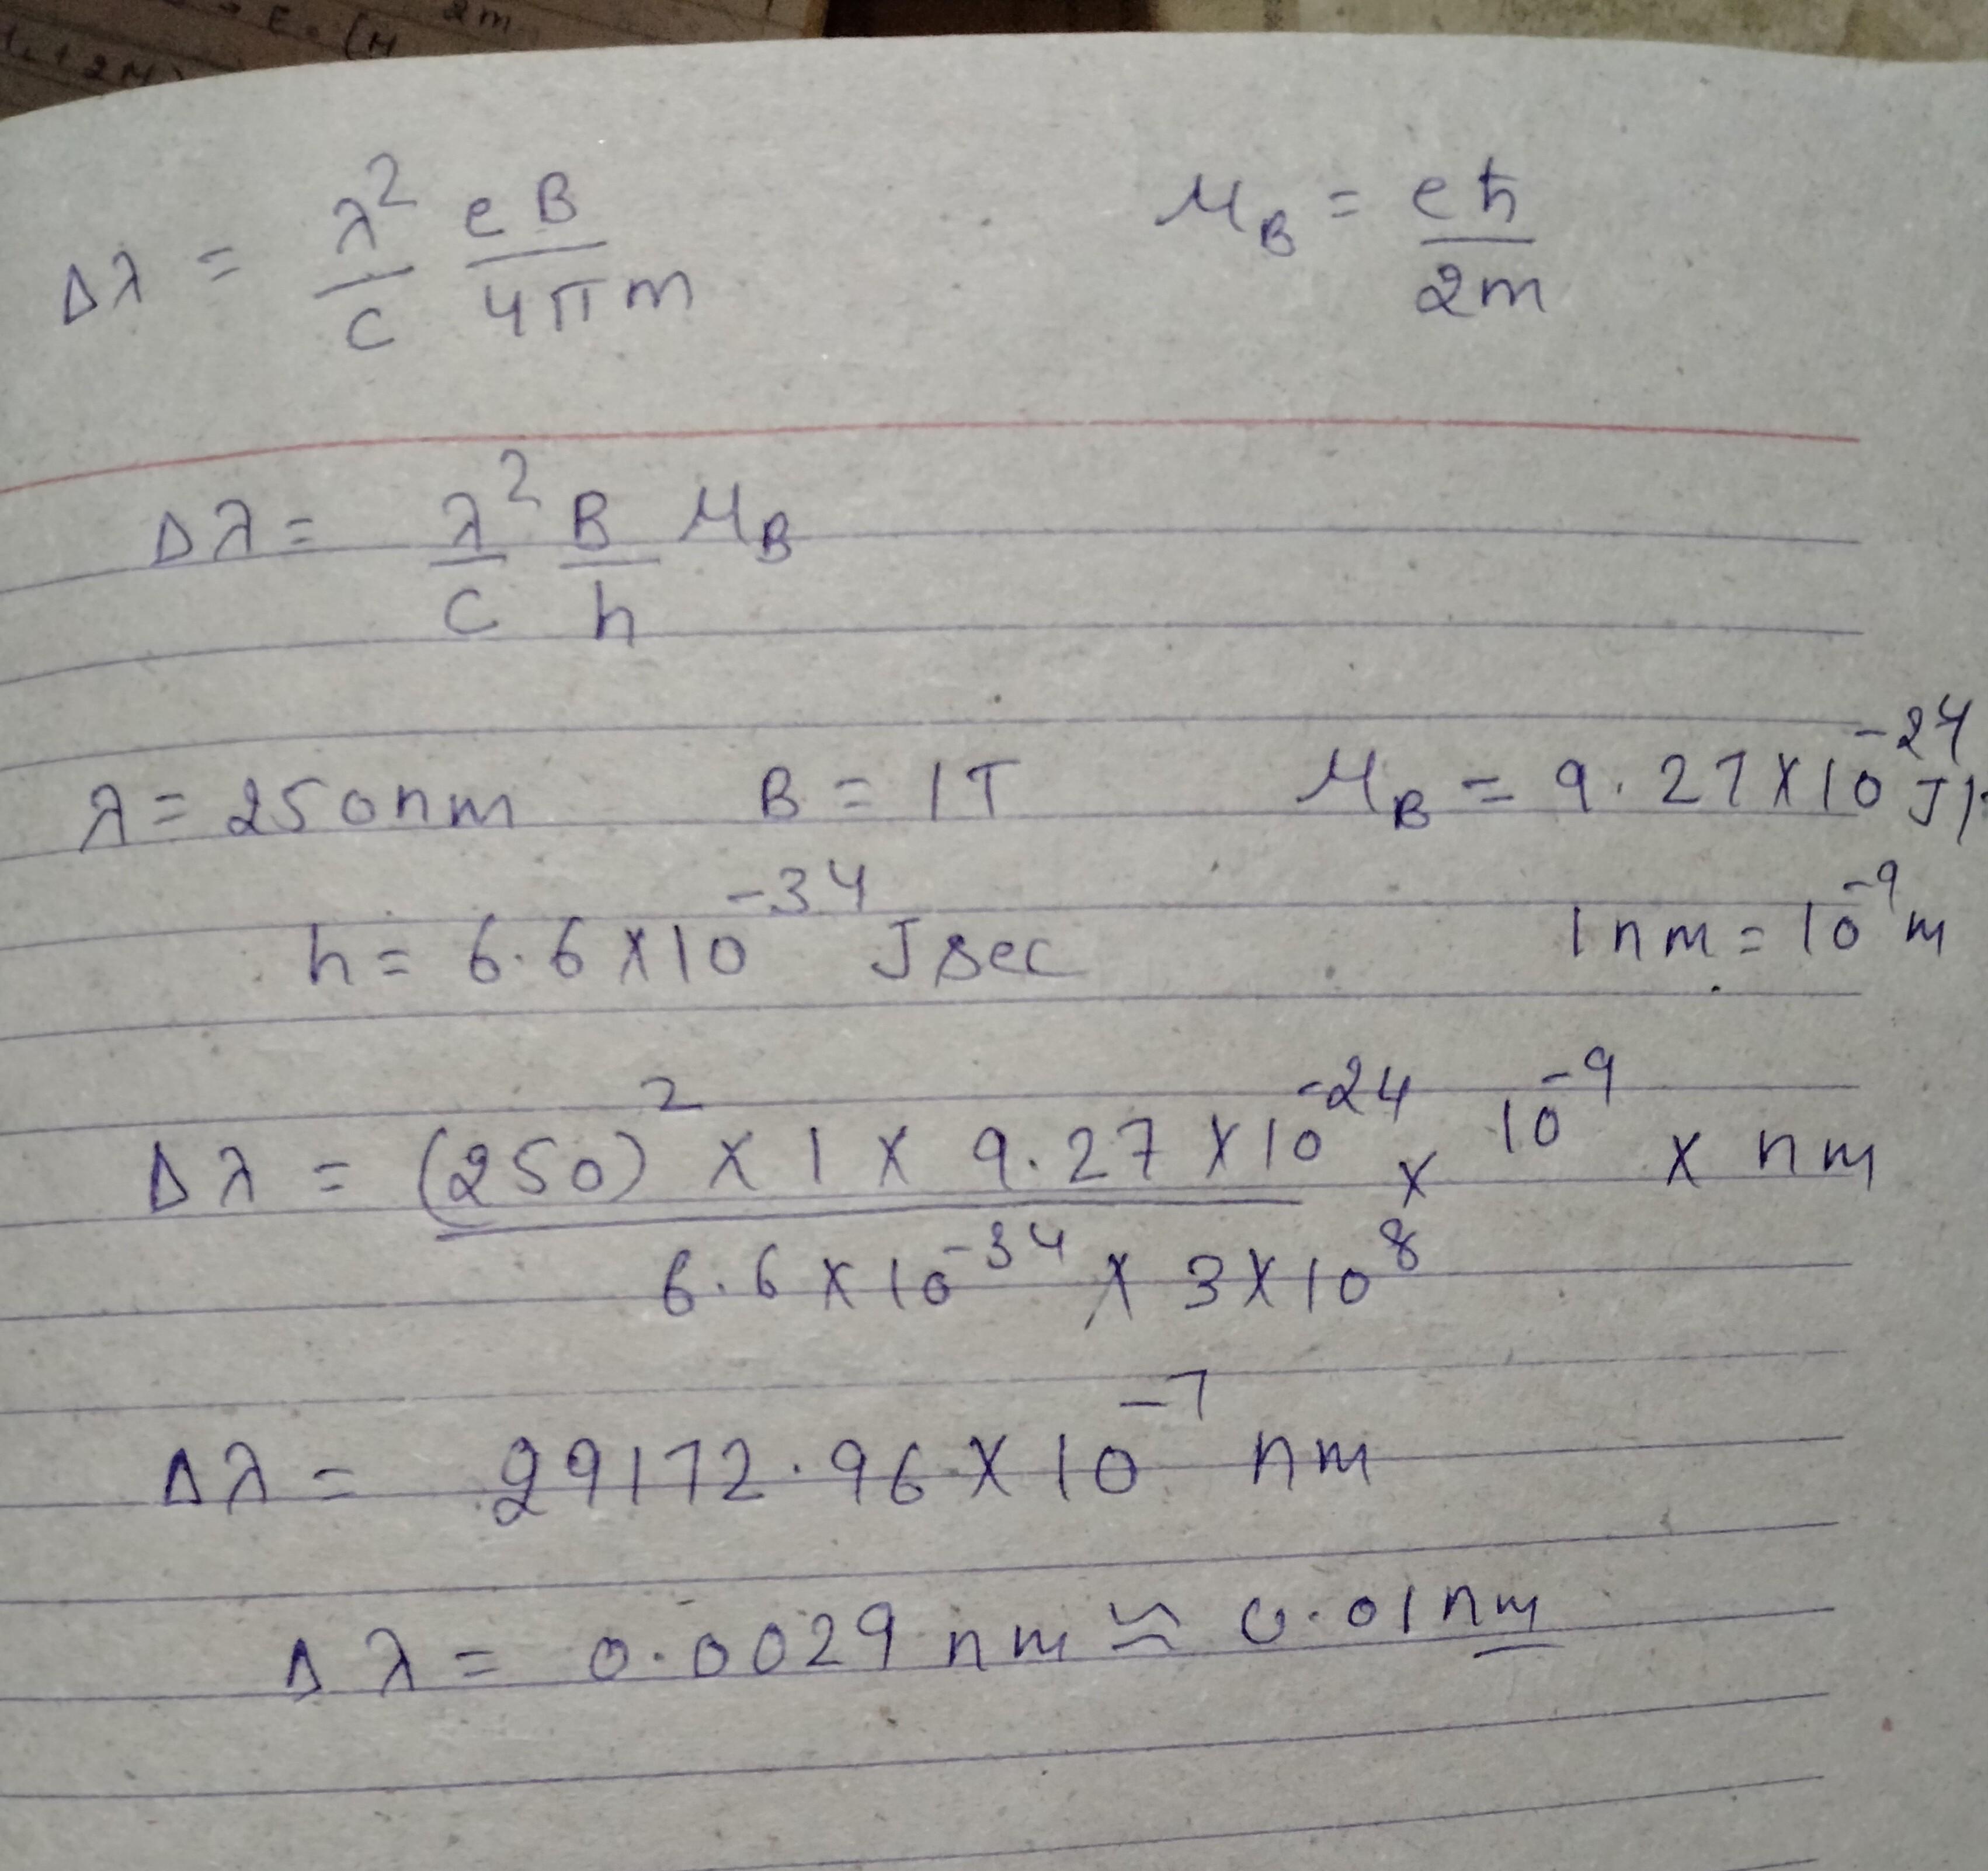 2m
E = (M
+ 2M)
Δλ = λ²/c eB/4πm    μ_B = eħ/2m
Δλ = λ²/c B/h μ_B
λ = 250nm    B = 1T    μ_B = 9.27 × 10⁻²⁴ J/
h = 6.6 × 10⁻³⁴ J sec    1nm = 10⁻⁹ m
Δλ = (250)² × 1 × 9.27 × 10⁻²⁴ / 6.6 × 10⁻³⁴ × 3 × 10⁸ × 10⁻⁹ × nm
Δλ = 29172.96 × 10⁻⁷ nm
Δλ = 0.0029 nm ≌ 0.01nm